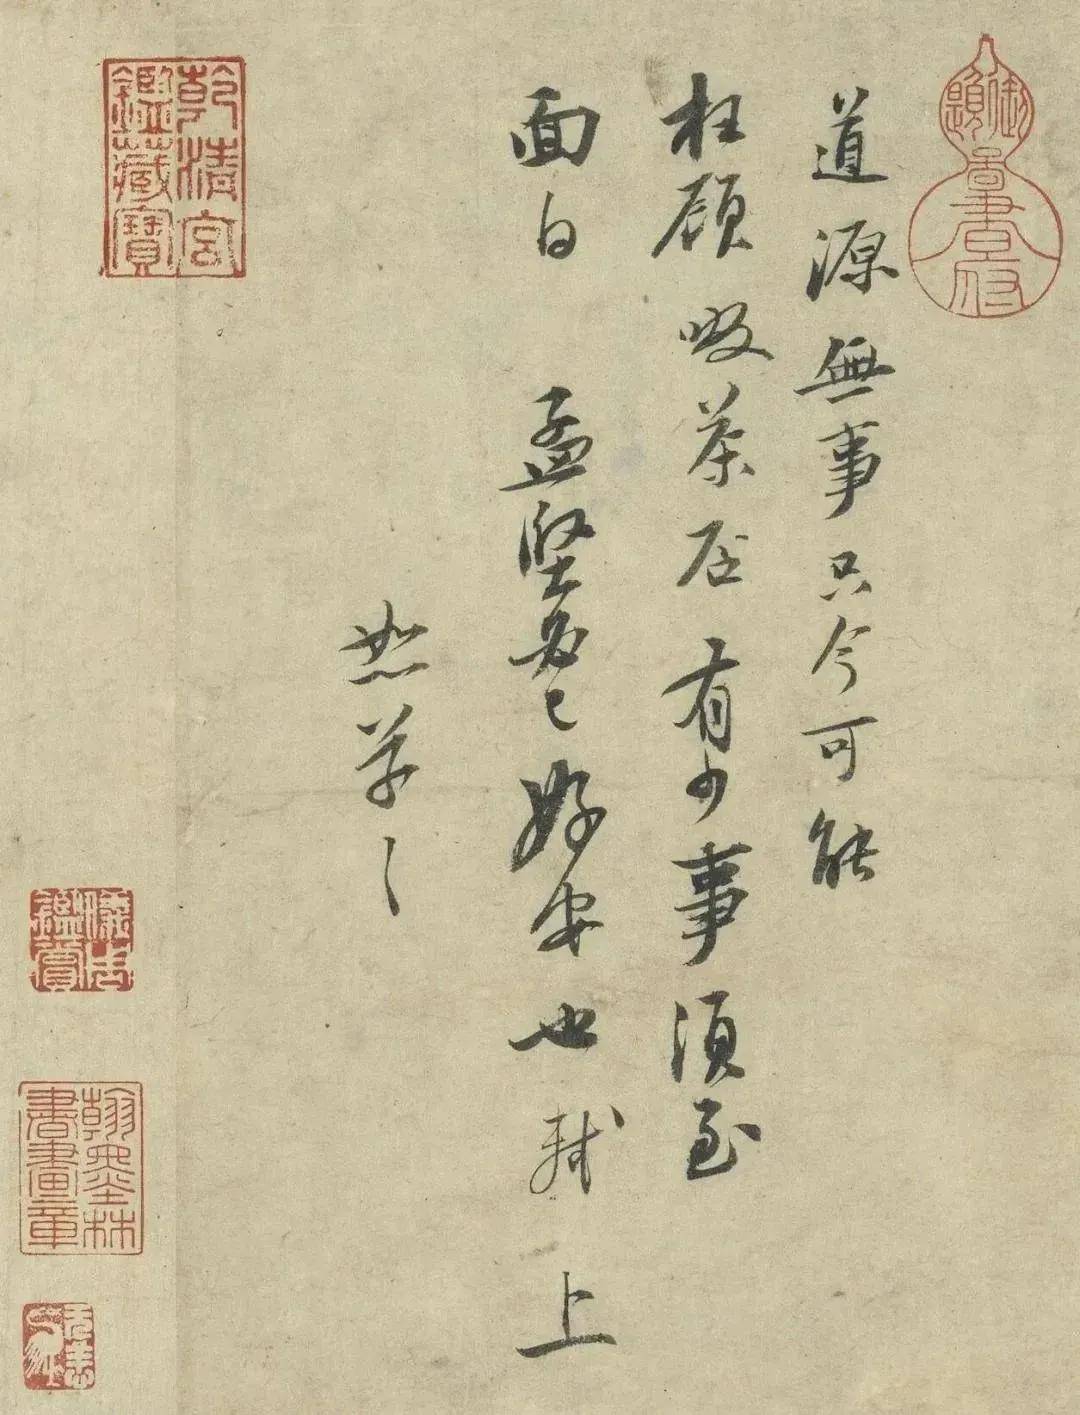 御題
啚書府
道源無事只今可能
枉顧啜茶否有少事須至
面白 孟堅必已好安也軾 上
恕草草
乾清宮
鑑藏寶
儀周
鑑賞
翰墨林
書畫章